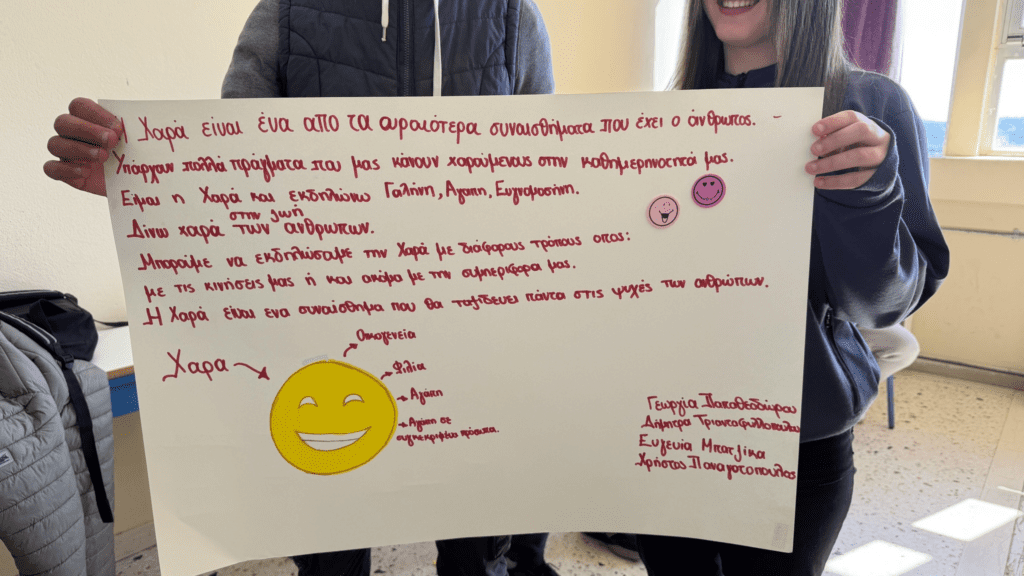 Η Χαρά είναι ένα απο τα ωραιότερα συναισθήματα που έχει ο άνθρωπος.
Υπάρχουν πολλά πράγματα που μας κάνουν χαρούμενους στην καθημερηνοτητά μας.
Είμαι η Χαρά και εκδηλώνω Γαλήνη, Αγάπη, Ευγνωμοσήνη.
στην ζωή
Δίνω χαρά των ανθρωπων.
Μπορούμε να εκδηλώσουμε την Χαρά με διάφορους τρόπους οπως:
με τις κινήσεις μας ή και ακόμα με την συμπεριφορα μας.
Η Χαρά είναι ενα συναίσθημα που θα ταξιδευει πάντα στις ψυχές των ανθρώπων.
Χαρα
Οικογενεία
Φιλία
Αγάπη
Αγάπη σε
συγκεκριμένα πρόσωπα.
Γεωργία Παπαθεοδώρου
Δήμητρα Τριανταφυλλοπουλου
Ευγενία Μπατζίκα
Χρήστος Παναγοτοπουλος